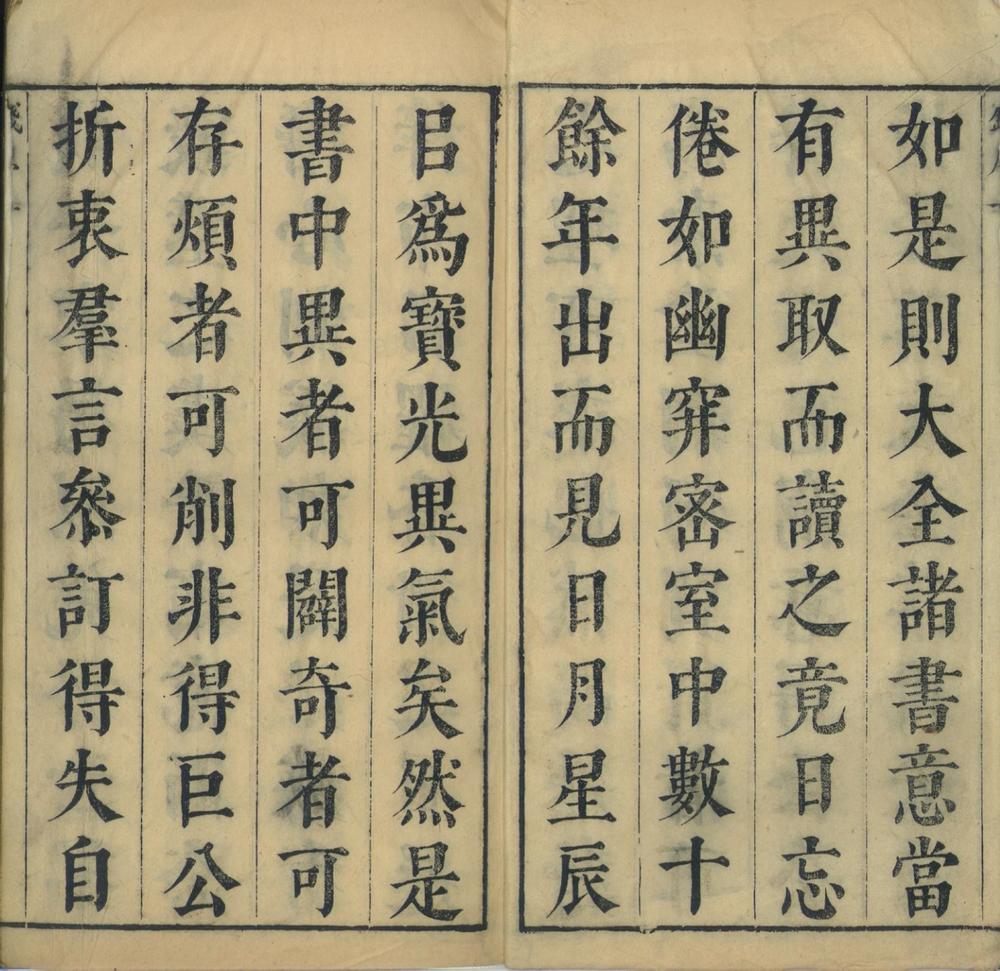 如是則大全諸書意當
有異取而讀之竟日忘
倦如幽穽密室中數十
餘年出而見日月星辰
㠯爲寶光異氣矣然是
書中異者可闢奇者可
存煩者可削非得巨公
折衷羣言叅訂得失自